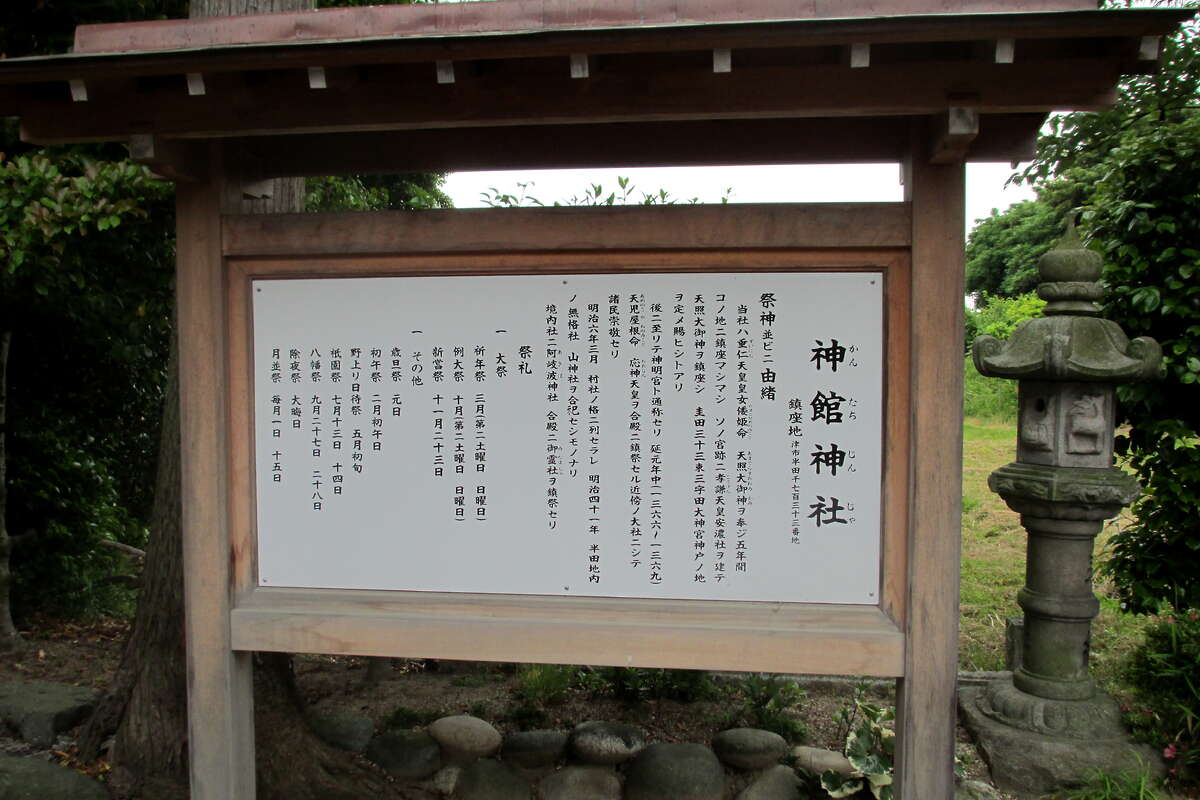 神館神社
かんたちじんじゃ
鎮座地 津市半田千七百三十三番地
祭神並ビニ由緒
当社ハ垂仁天皇皇女倭姫命 天照大御神ヲ奉ジ五年間
コノ地ニ鎮座マシマシ ソノ宮跡ニ孝謙天皇安濃社ヲ建テ
天照大御神ヲ鎮座シ 圭田三十三束三字田大神宮神戸ノ地
ヲ定メ賜ヒシトアリ
後ニ至リテ神明宮ト通称セリ 延元年中(一三六六〜一三六九)
天児屋根命 応神天皇ヲ合殿ニ鎮祭セル近傍ノ大社ニシテ
諸民崇敬セリ
明治六年三月 村社ノ格ニ列セラレ 明治四十一年 半田地内
ノ無格社 山神社ヲ合祀セシモノナリ
境内社ニ阿岐波神社 合殿ニ御霊社ヲ鎮祭セリ
祭礼
一 大祭
祈年祭 三月(第二土曜日 日曜日)
例大祭 十月(第二土曜日 日曜日)
新嘗祭 十一月二十三日
一 その他
歳旦祭 元日
初午祭 二月初午日
野上り日待祭 五月初旬
祇園祭 七月十三日 十四日
八幡祭 九月二十七日 二十八日
除夜祭 大晦日
月並祭 毎月一日 十五日